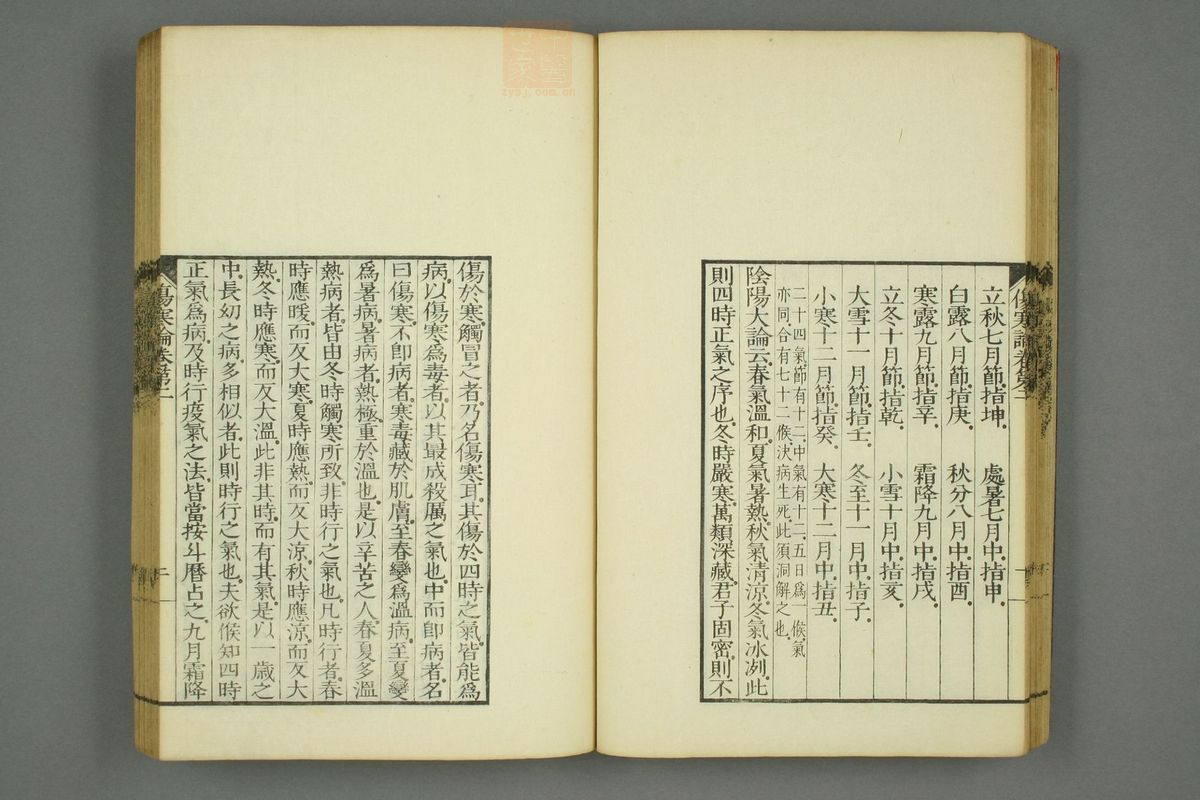 傷寒論卷第二
立秋七月節指坤。 處暑七月中。指申。
白露八月節。指庚。 秋分八月中。指酉。
寒露九月節。指辛。 霜降九月中。指戌。
立冬十月節。指乾。 小雪十月中。指亥。
大雪十一月節。指壬。 冬至十一月中。指子。
小寒十二月節。指癸。 大寒十二月中。指丑。
二十四氣。節有十二。中氣有十二。五日爲一候。氣
亦同。合有七十二候。決病生死。此須洞解之也。
陰陽大論云。春氣溫和。夏氣暑熱。秋氣清涼。冬氣冰冽。此
則四時正氣之序也。冬時嚴寒。萬類深藏。君子固密。則不
傷於寒。觸冒之者。乃名傷寒耳。其傷於四時之氣。皆能爲
病。以傷寒爲毒者。以其最成殺厲之氣也。中而卽病者。名
曰傷寒。不卽病者。寒毒藏於肌膚。至春變爲溫病。至夏變
爲暑病。暑病者。熱極。重於溫也。是以辛苦之人。春夏多溫
熱病者。皆由冬時觸寒所致。非時行之氣也。凡時行者。春
時應暖。而反大寒。夏時應熱。而反大涼。秋時應涼。而反大
熱。冬時應寒。而反大溫。此非其時。而有其氣。是以一歲之
中。長幼之病。多相似者。此則時行之氣也。夫欲候知四時
正氣爲病。及時行疫氣之法。皆當按斗曆占之。九月霜降
傷寒論卷第二
二
zysj.com.cn